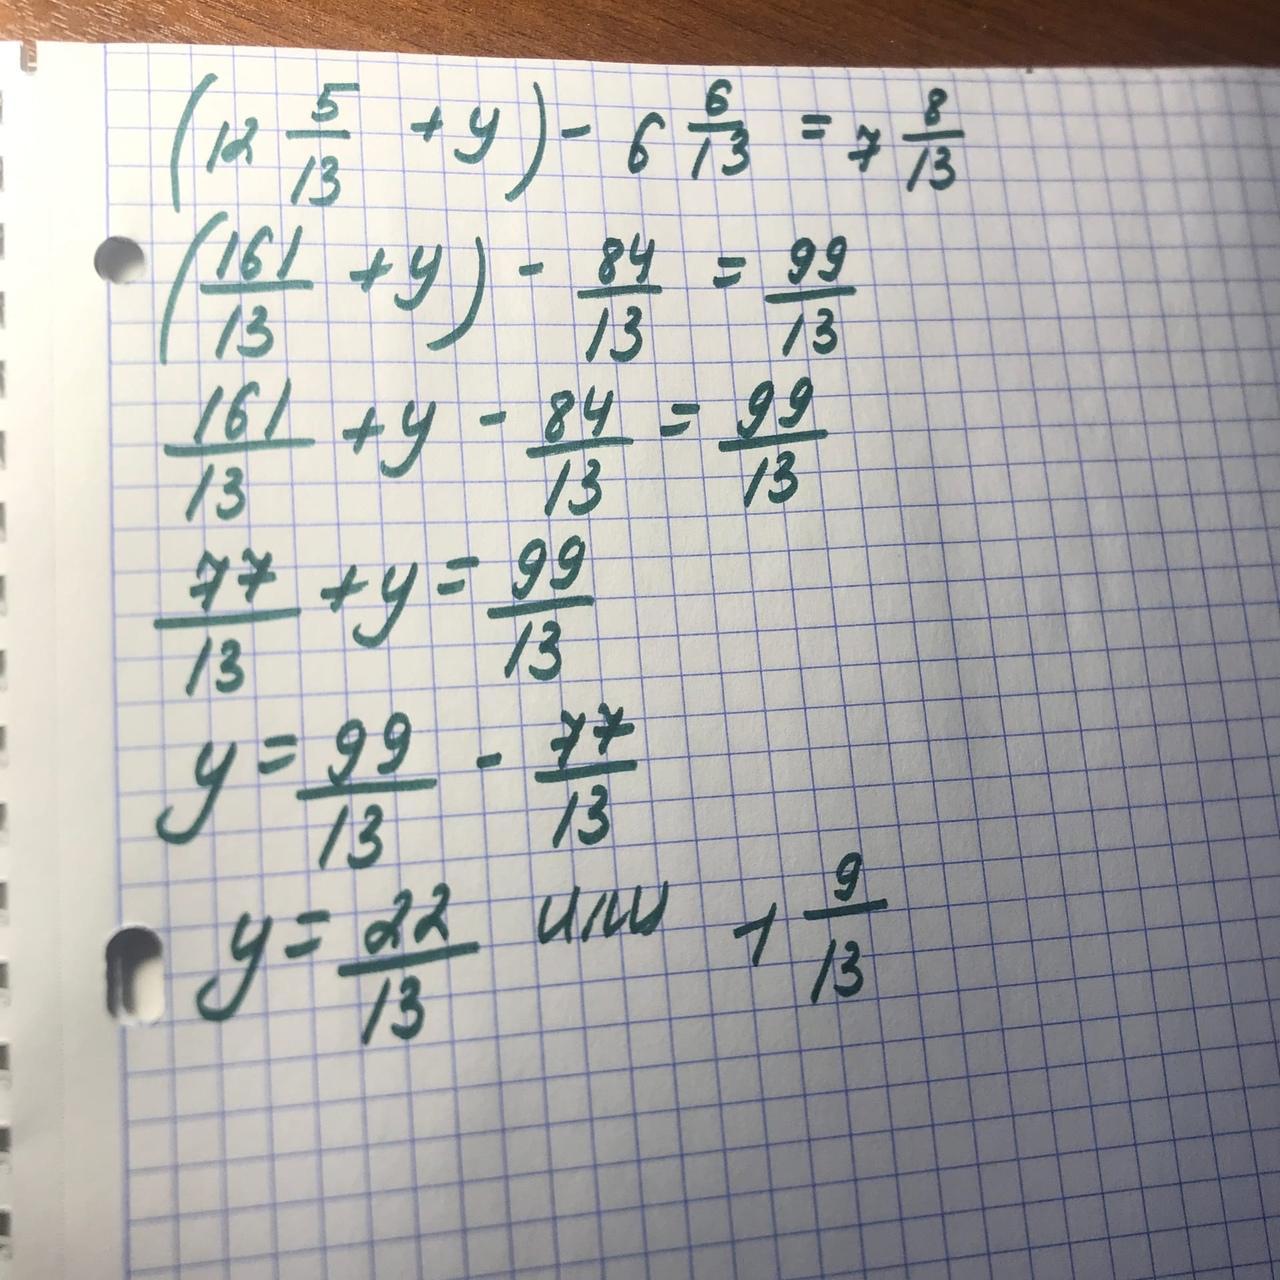 (12 5/13 + y) - 6 6/13 = 7 8/13
(161/13 + y) - 84/13 = 99/13
161/13 + y - 84/13 = 99/13
77/13 + y = 99/13
y = 99/13 - 77/13
y = 22/13 или 1 9/13